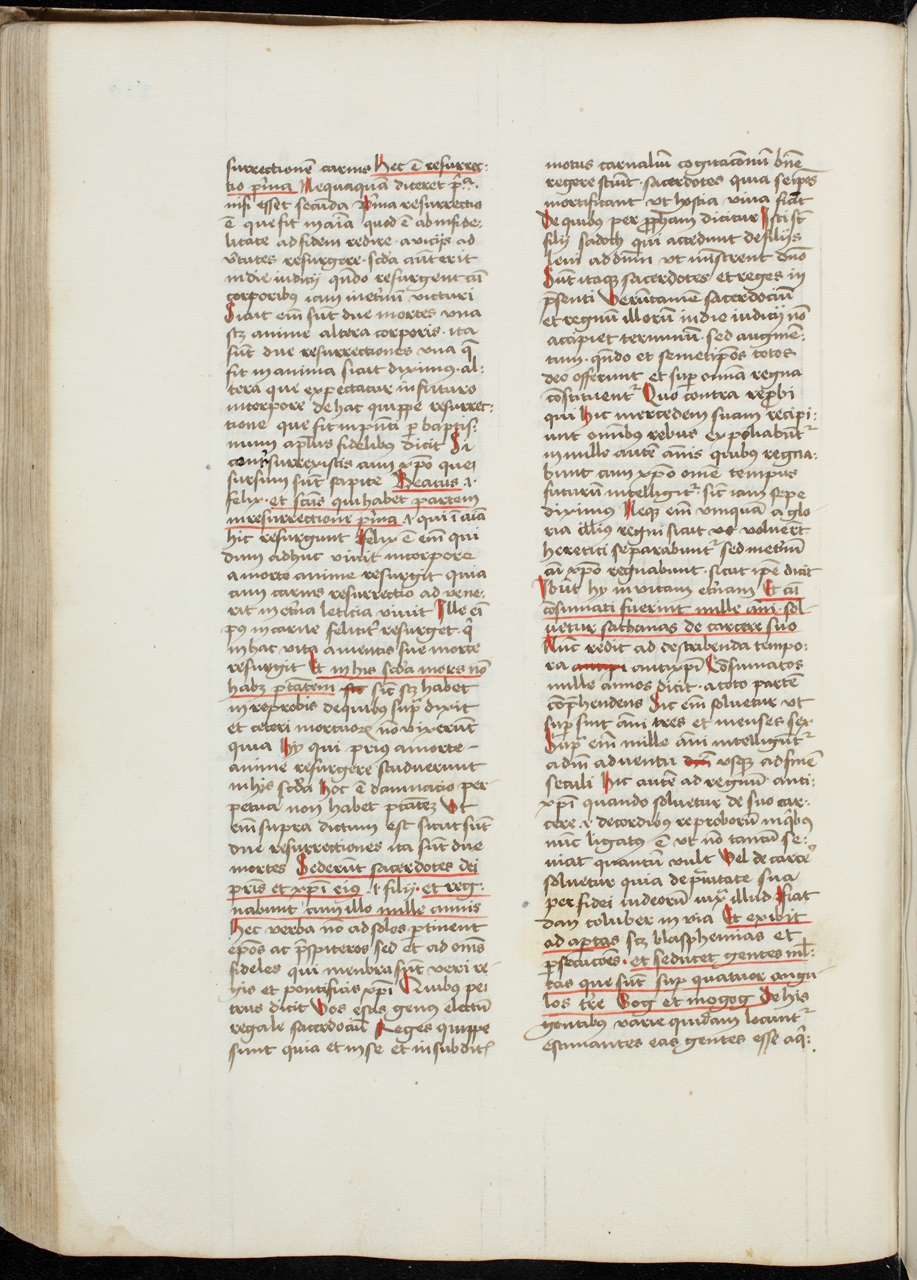 surrectionē carnis Hec ē resurrec:
tio p̄ma Nequaquā diceret p̄a.
nisi esset secūda Prima resurrectio
ē que fit in aīa quod ē ab infide:
litate ad fidem redire a vicijs ad
v̄tutes resurgere. scd̄a aūt erit
in die iudicij qn̄do resurgent cū
corporibꝰ cum inet̄nū victuri
Sicut eīn sūt due mortes vna
scꝫ anime altera corporis. ita
sūt due resurrectiones vna q̄
fit in anima sicut diximus. al:
tera que expectatur in futuro
in corpore de hac quippe resurrec:
tione que fit in p̄nti p̄ baptis:
mum aplūs fidelibꝰ dicit Si
consurrexistis cum xp̄o que
sursum sūt sapite Beatus ⁊
felix. et scūs qui habet partem
in resurrectione p̄ma ⁊ qui ī aīa
hic resurgunt Felix ē eīn qui
dum adhuc viuit in corpore
a morte anime resurgit quia
cum carnis resurrectio ad vene:
rit in et̄na leticia viuit Ille eī
pꝰ in carne felicit̄ resurget. q̄
in hac vita a mentis sue morte
resurgit Et in his scd̄a mors nō
habꝫ p̄tatem sic scꝫ habet
in reprobis de quibus sup̄ dixit
et ceteri mortuoꝝ nō vixerūt
quia hy qui prius a morte
anime resurgere studuerunt
in hijs scd̄a hoc ē damnatio per
petua non habet p̄tatēꝫ Vt
eīn supra dictum est sicut sūt
due resurrectiones ita sūt due
mortes Sederūt sacerdotes dei
pr̄is et xp̄i eiꝰ ⁊ filij. et reg:
nabunt cum illo mille annis
Hec verba nō ad solos p̄tinent
ep̄os ac p̄sp̄iteros sed et ad om̄s
fideles qui membra sūt veri re
gis et pontificis xp̄i Quibus pe
trus dicit Vos estis genꝰ electū
regale sacerdociū Reges quippe
sunt quia et in se et in subdit̄
motus carnaliū cogitacōnū bn̄e
regere sciūt. sacerdotes quia seip̄os
mortificant vt hostia viua fiāt
De quibus per prophetam dicitur Isti sūt
filij sadoch qui accedunt de filijs
leui ad dn̄m vt mīstrent dn̄o
Sūt itaqꝫ sacerdotes et reges in
p̄senti Verūtamē sacerdociū
et regnū illorū in die iudicij nō
accipiet terminum. sed augmē:
tum. qn̄do et semetip̄os totos
deo offerunt et sup̄ om̄ia regna
cōstituent̄ Quo contra rep̄bi
qui hic mercedem suam recipi:
unt om̄ibus rebus expoliabūt̄
in mille autē annis quibus regna:
bunt cum xp̄o om̄e tempus
futurū intelligit̄. sic̄ iam sepe
diximus Neqꝫ eīn vmquā a glo
ria illius regni sicut voluert̄
heretici separabunt̄ sed inet̄nū
cū xp̄o regnabunt. sicut ip̄e dicit
Ibūt hy in vitam et̄nam Et cū
cōsūmati fuerint mille anni sol
uetur sathanas de carcere suo
Nūc redit ad describenda tempo:
ra antixpi Cōsūmatos
mille annos dicit. a toto partē
cōp̄hendens Sic eīn soluetur vt
sup̄ sint anni tres et menses sex.
Sup̄ eīn mille anni intelligūt̄
a dn̄i aduentu vsqꝫ ad finē
seculi Hic autē ad regnū anti:
xp̄i quando soluetur de suo car:
cere ⁊ de cordibus reproborū in q̄bus
nūc ligatus ē vt nō tantū se:
uiat quantū vult Vel de carcē
soluetur quia de prauitate sua
perfidei iudeorū iux̄ illud Fiat
dan coluber in via Et exibit
ad aptas scꝫ blasphemias et
p̄secucōes. et seducet gentes ml̄:
tas que sūt sup̄ quatuor angu
los tr̄e Gog et magog De his
gentibus varie quidam locunt̄
estimantes eas gentes esse aq̄: